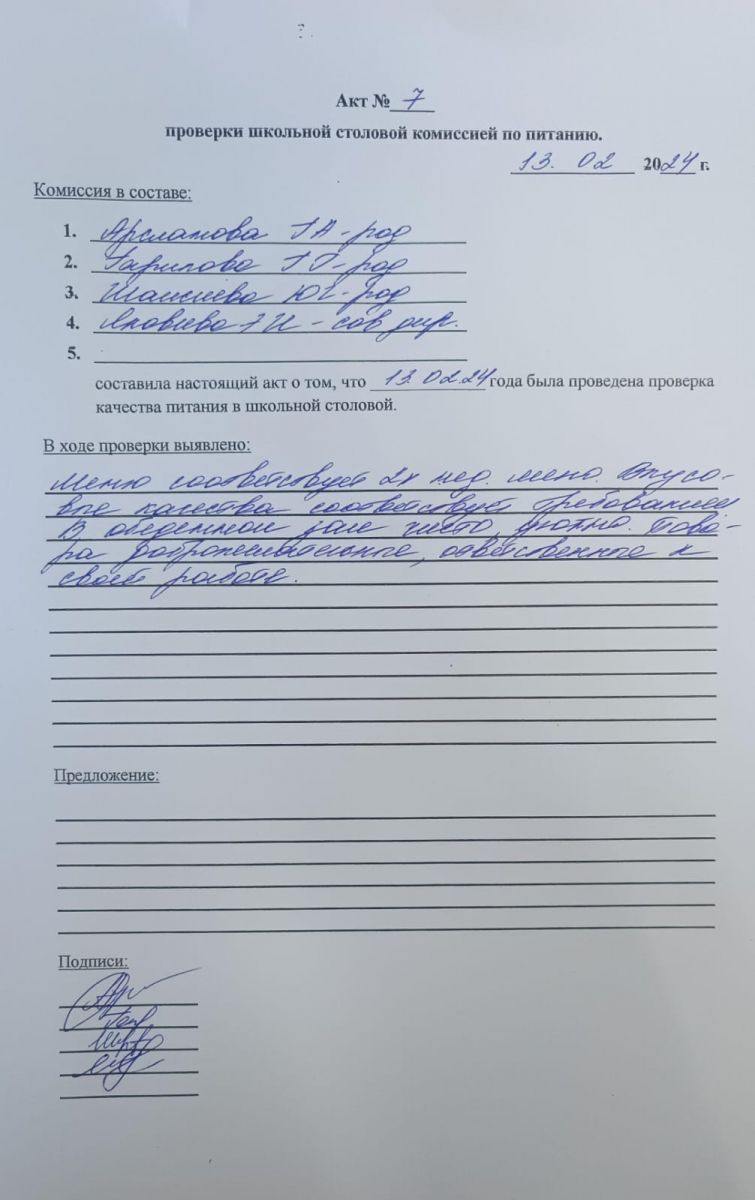 Акт № 7
проверки школьной столовой комиссией по питанию.
13. 02 2024 г.
Комиссия в составе:
1. Арсланова ГА - род
2. Гарипова - род
3. Шамсиева - род
4. Яковлева - сов дир.
5.
составила настоящий акт о том, что 13.02.24 года была проведена проверка
качества питания в школьной столовой.
В ходе проверки выявлено:
Меню соответствует 2х нед. меню. Вкусо-
вые качества соответствует требованием
В обеденном зале чисто, уютно. Пова-
ра доброжелательные, ответственные к
своей работе.
Предложение:
Подписи: